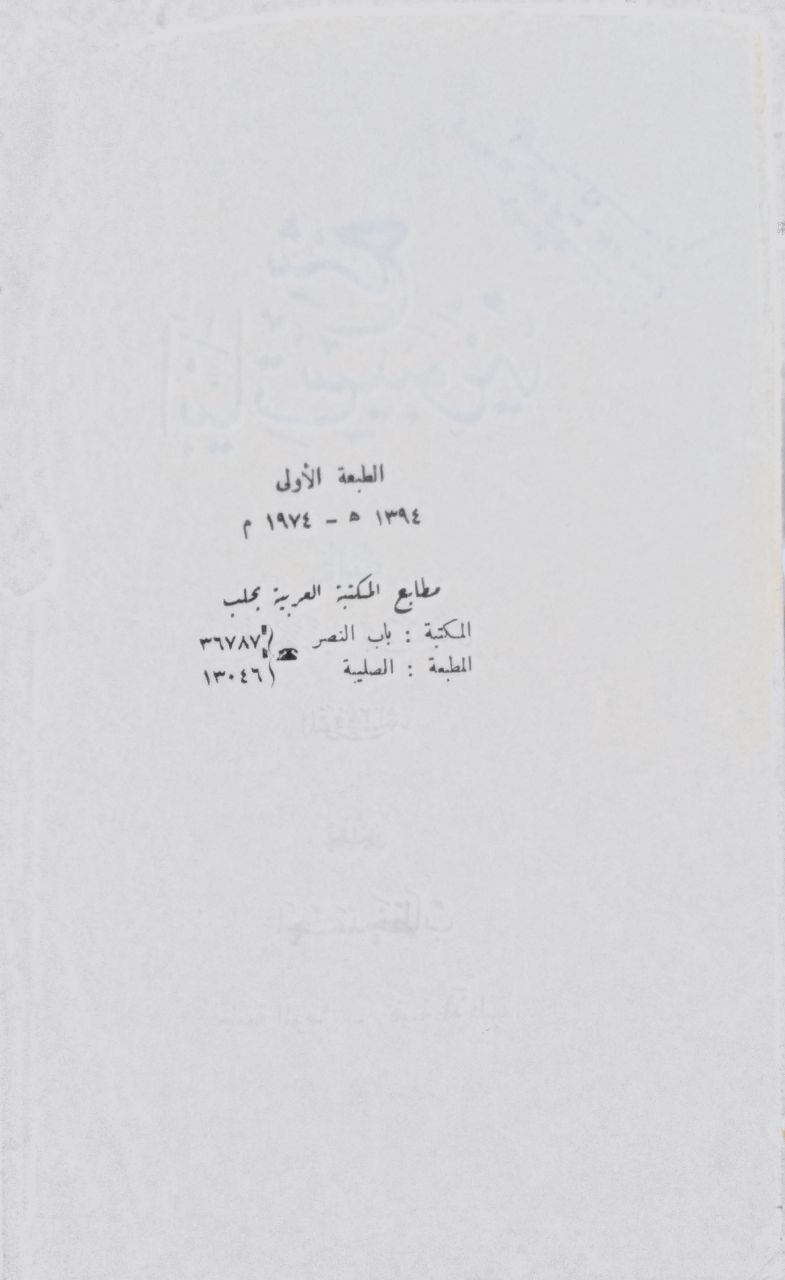 الطبعة الأولى
١٣٩٤ ه – ١٩٧٤ م
مطابع المكتبة العربية بحلب
المكتبة : باب النصر ٣٦٧٨٧
المطبعة : الصليبة ١٣٠٤٦